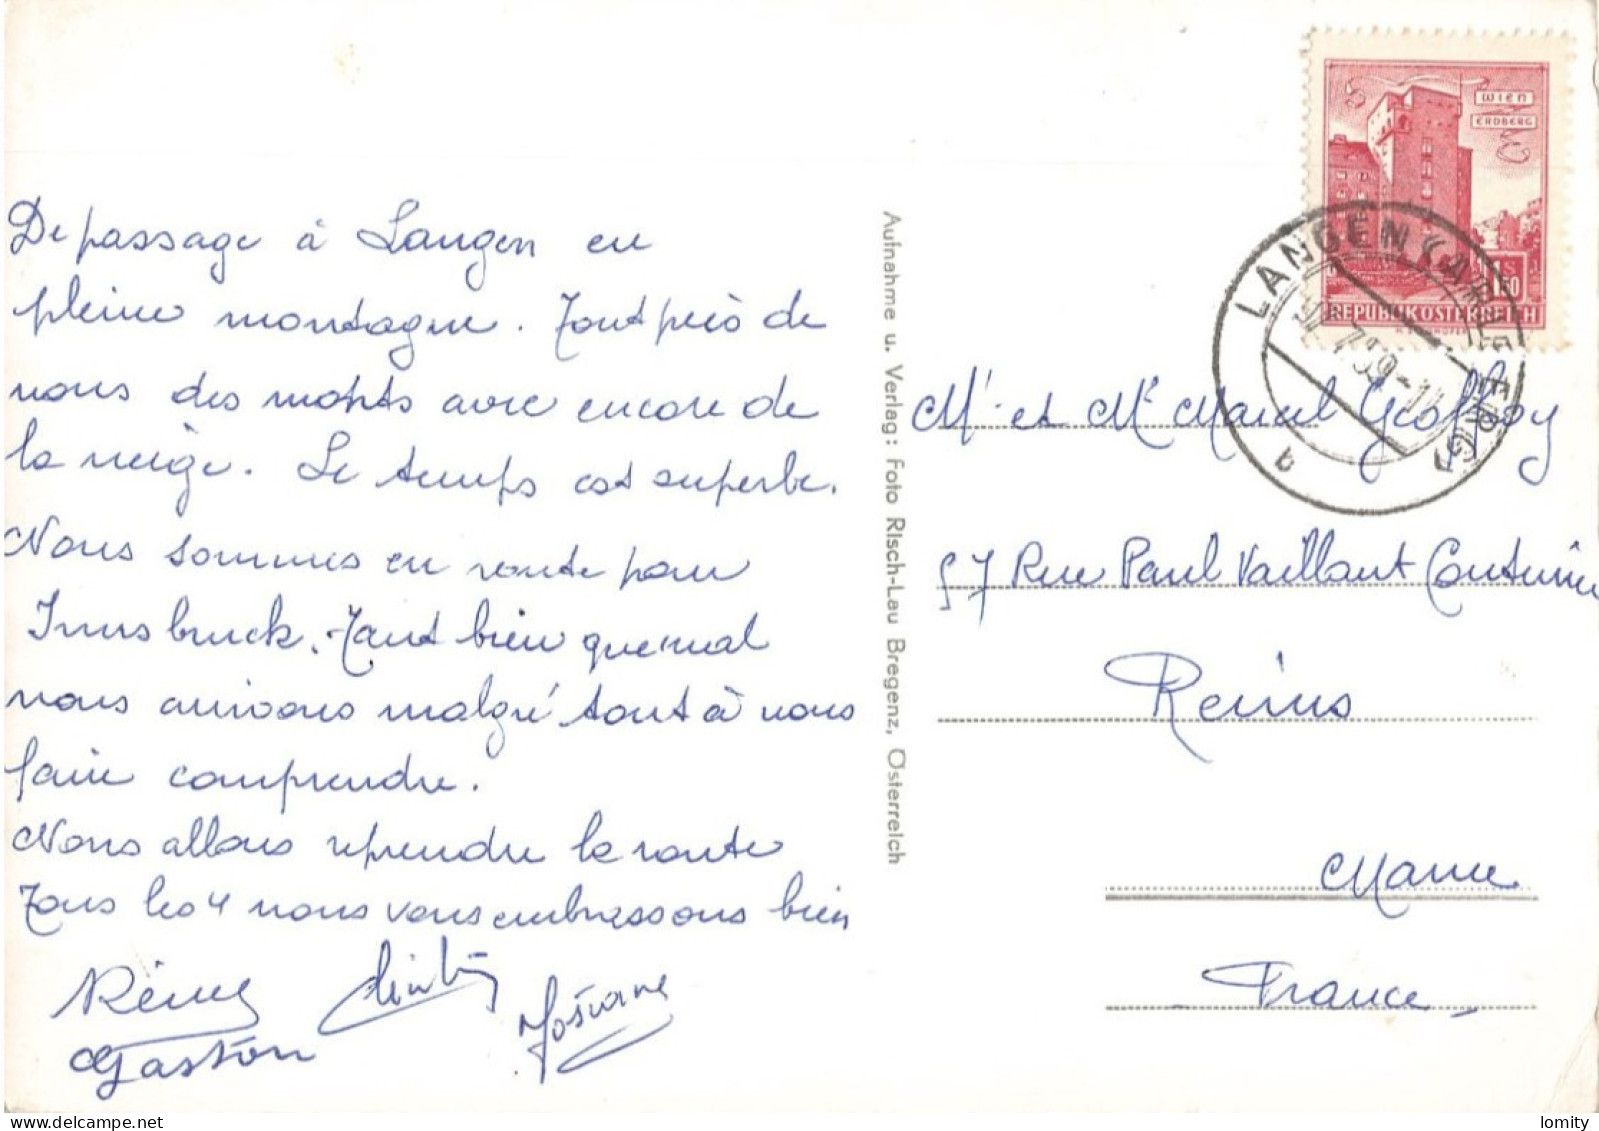 De passage à Langen en
pleine montagne. Tout près de
nous des monts avec encore de
la neige. Le temps est superbe.
Nous sommes en route pour
Innsbruck. Tant bien que mal
nous arrivons malgré tout à nous
faire comprendre.
Nous allons reprendre la route
Tous les 4 nous vous embrassons bien
Rémy
Gaston
Josiane
Aufnahme u. Verlag: Foto Risch-Lau Bregenz, Österreich
WIEN
ERDBERG
S
1.50
REPUBLIK ÖSTERREICH
LANGEN (ARLBERG)
b
Mr et Me Marcel Geoffroy
57 Rue Paul Vaillant Couturier
Reims
Marne
France
lomity